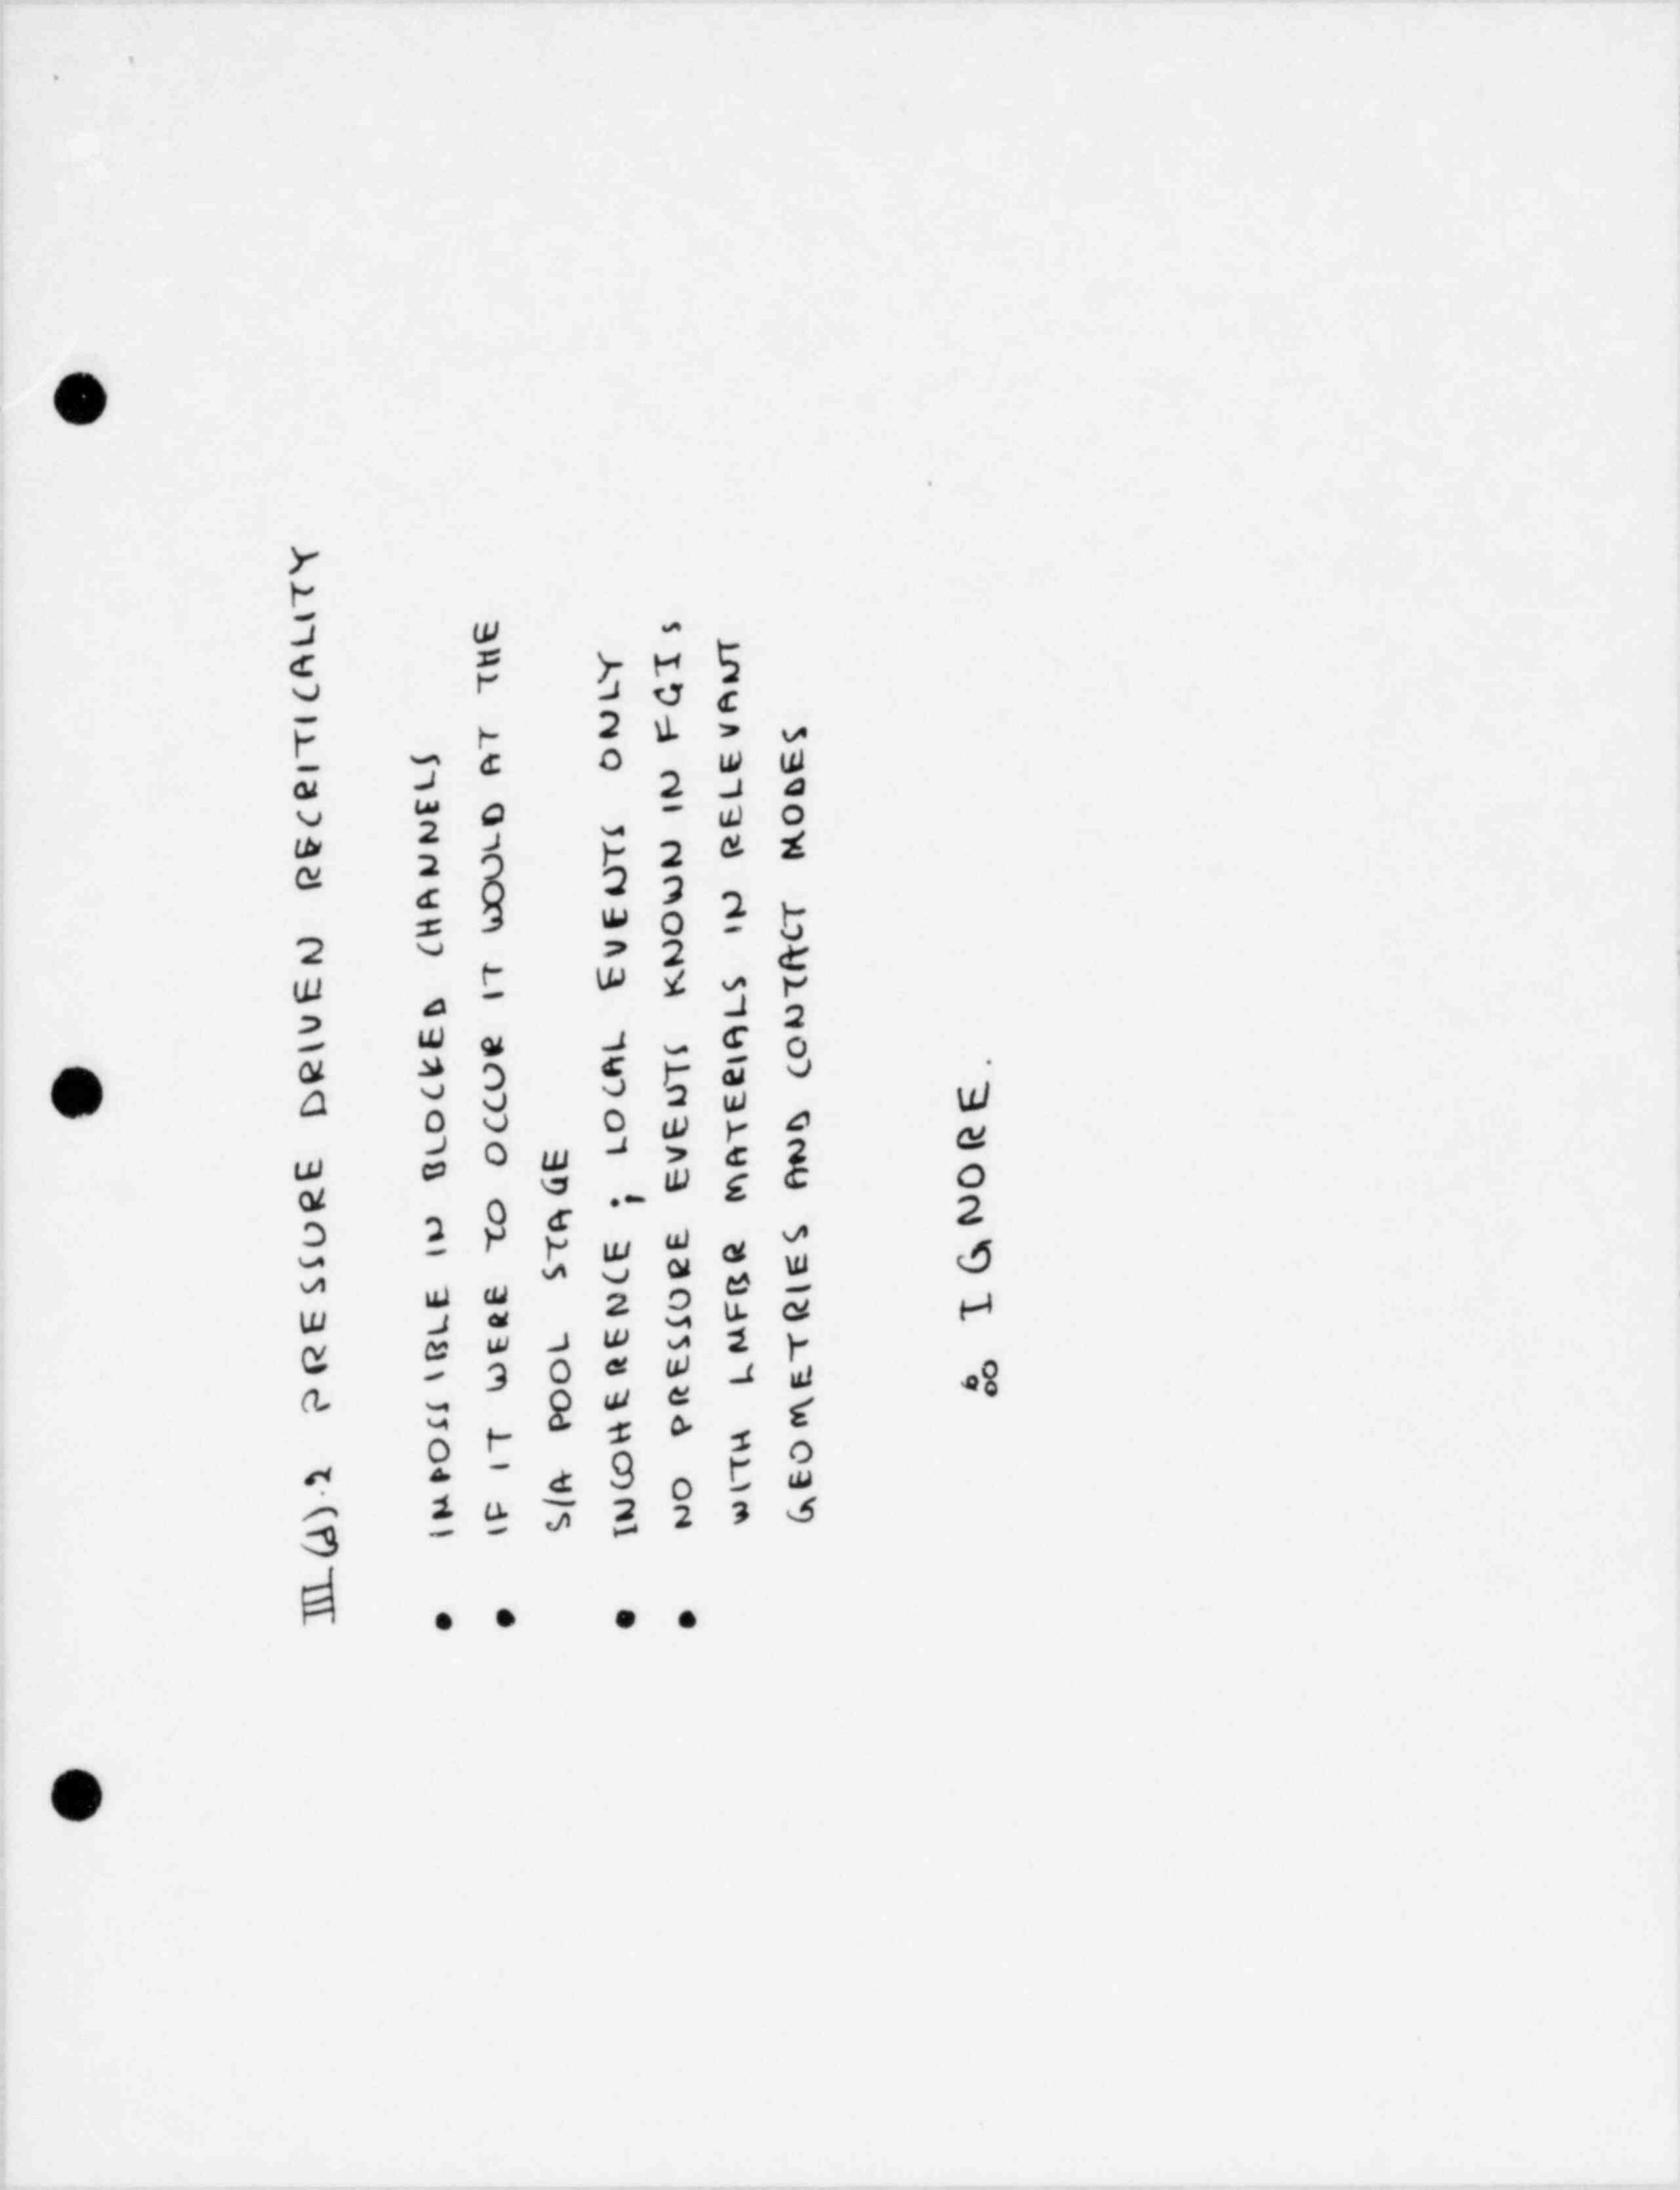 III(d).2 PRESSURE DRIVEN RECRITICALITY
• IMPOSSIBLE IN BLOCKED CHANNELS
• IF IT WERE TO OCCUR IT WOULD AT THE
S/A POOL STAGE
• INCOHERENCE ; LOCAL EVENTS ONLY
• NO PRESSURE EVENTS KNOWN IN FGIs
WITH LMFBR MATERIALS IN RELEVANT
GEOMETRIES AND CONTACT MODES
∴ IGNORE.